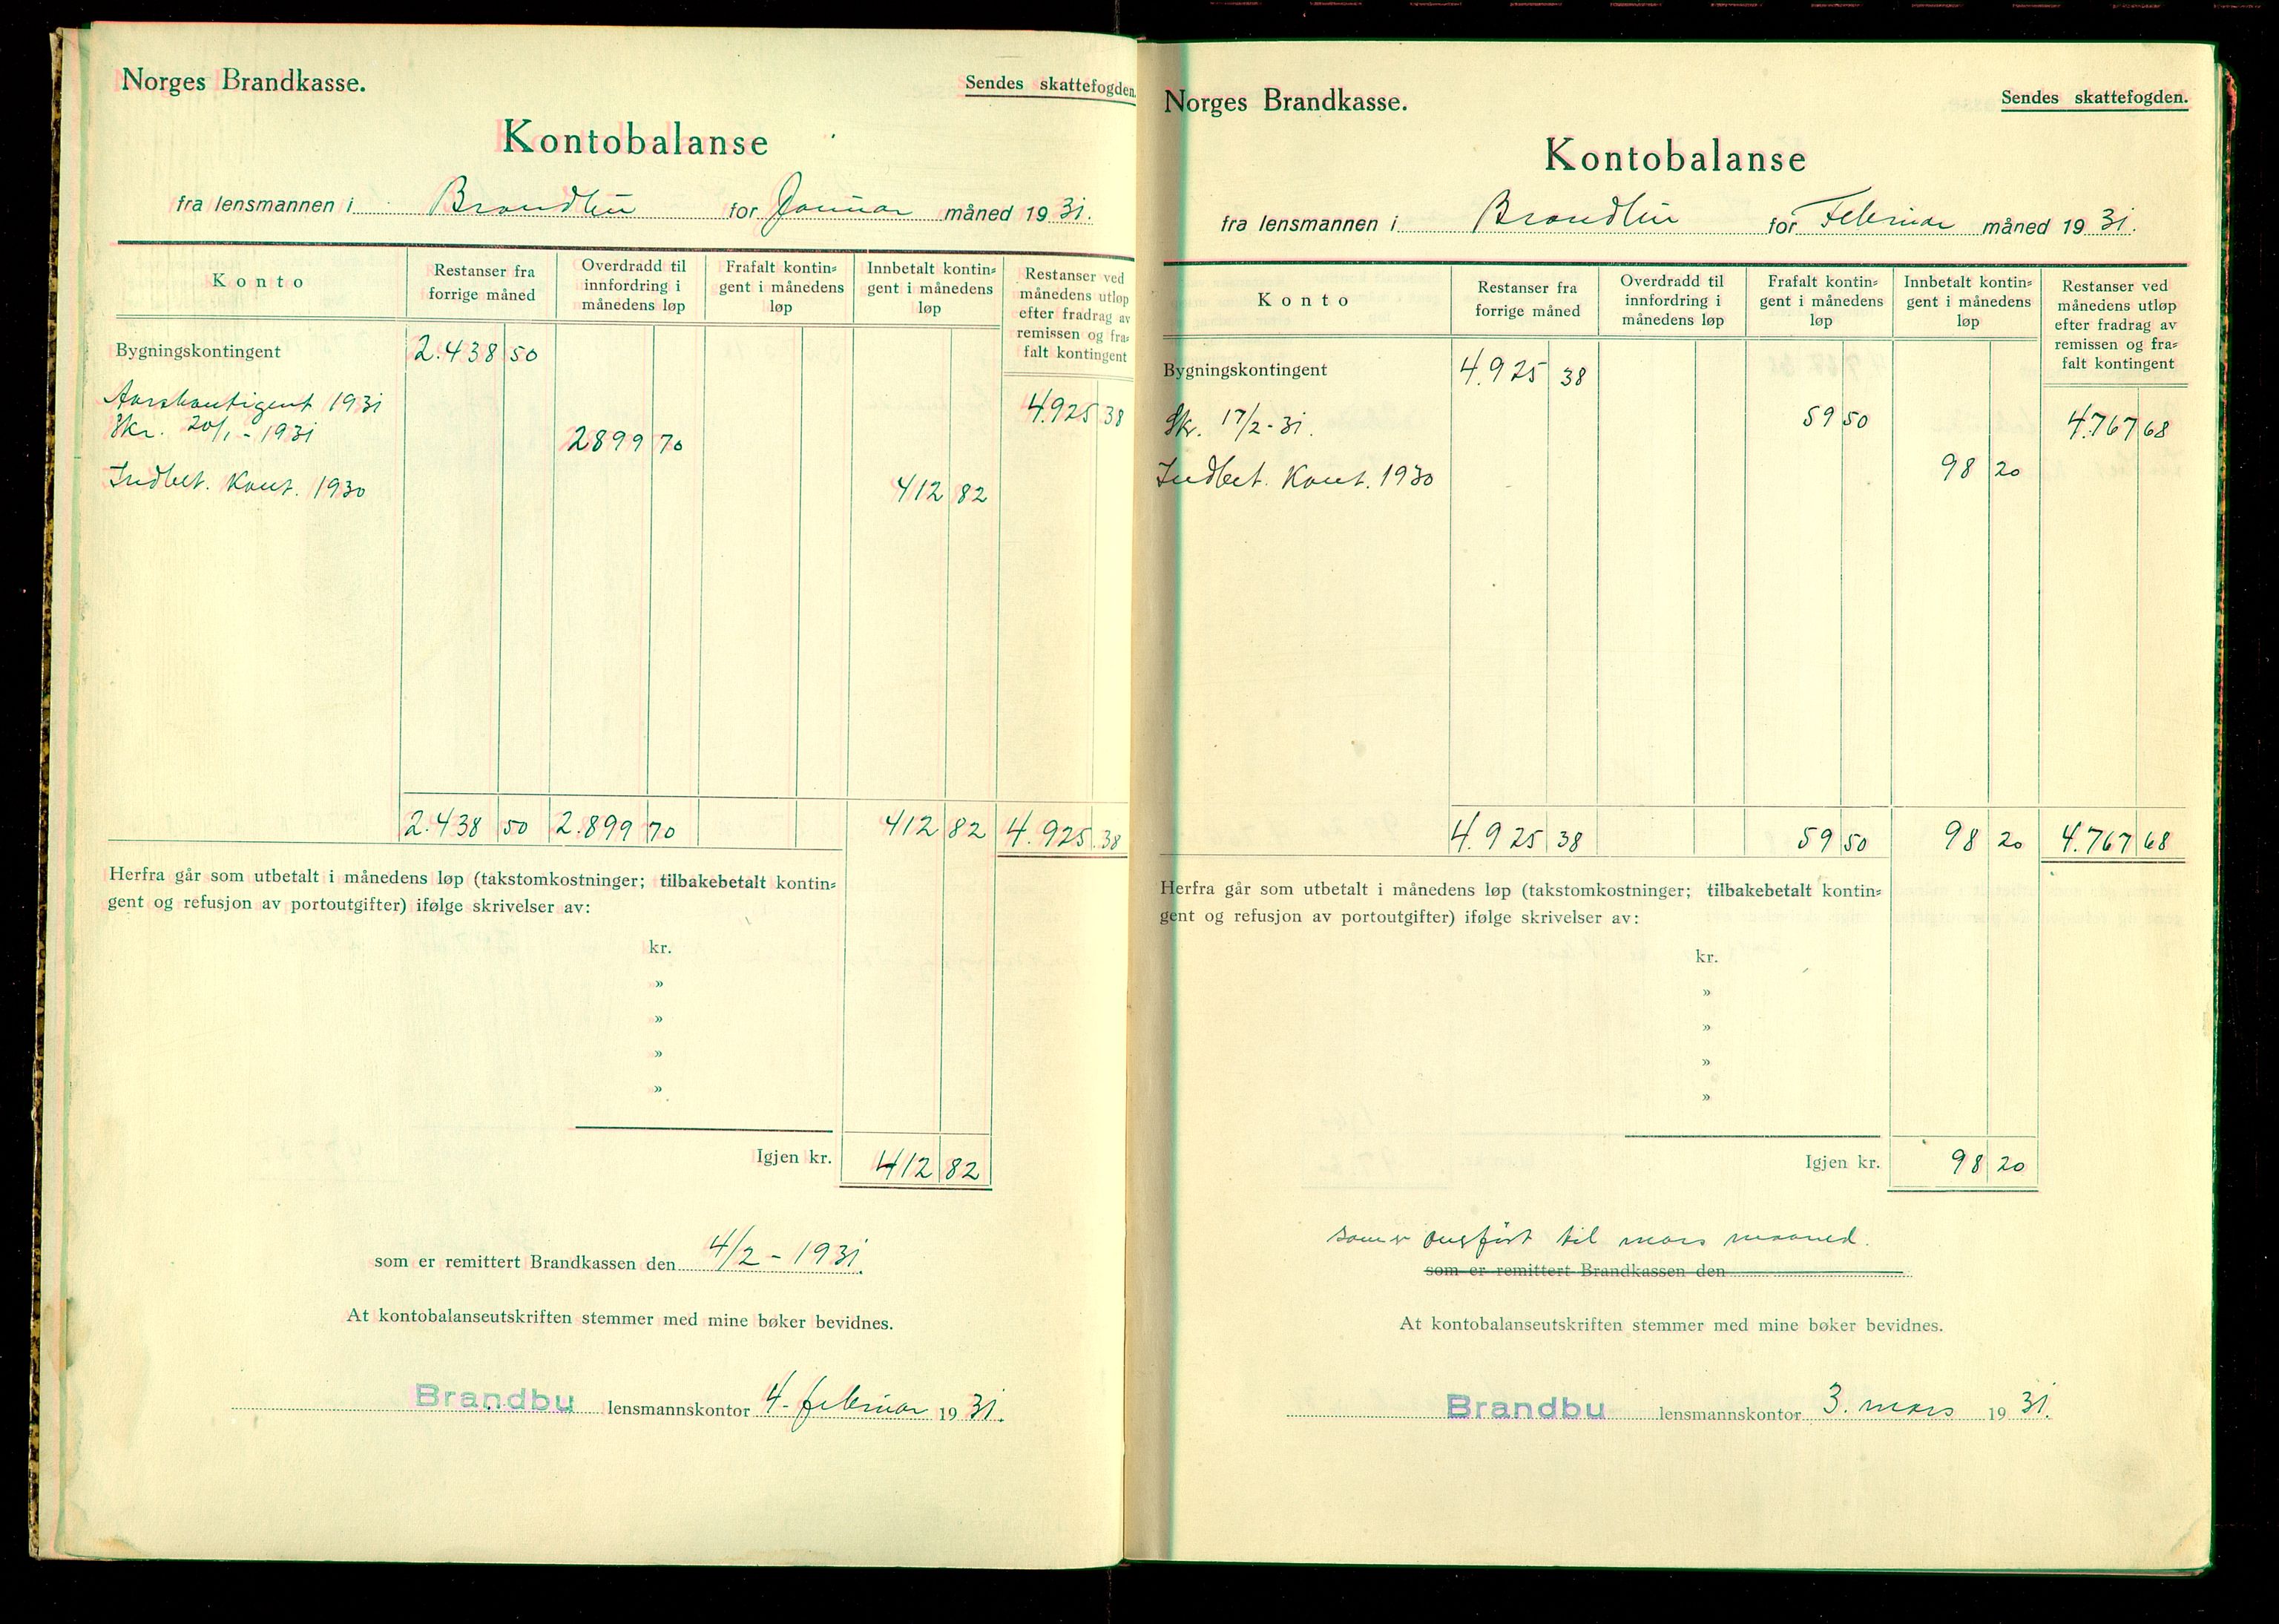 Norges Brandkasse.
Sendes skattefogden.
Kontobalanse
fra lensmannen i Brandbu for Januar måned 1931.
Konto
Restanser fra forrige måned
Overdradd til innfordring i månedens løp
Frafalt kontin= gent i månedens løp
Innbetalt kontin= gent i månedens løp
Restanser ved månedens utløp efter fradrag av remissen og fra= falt kontingent
Bygningskontingent 2.438 50
Aarskontigent 1931 4.925 38
Skr. 20/1 - 1931 2899 70
Indbet. Kont. 1930 412 82
2.438 50 2.899 70 412 82 4.925 38
Herfra går som utbetalt i månedens løp (takstomkostninger; tilbakebetalt kontin=
gent og refusjon av portoutgifter) ifølge skrivelser av:
kr.
»
»
»
»
Igjen kr. 412 82
som er remittert Brandkassen den 4/2 - 1931.
At kontobalanseutskriften stemmer med mine bøker bevidnes.
Brandbu lensmannskontor 4. februar 1931.
Norges Brandkasse.
Sendes skattefogden.
Kontobalanse
fra lensmannen i Brandbu for Februar måned 1931.
Konto
Restanser fra forrige måned
Overdradd til innfordring i månedens løp
Frafalt kontin= gent i månedens løp
Innbetalt kontin= gent i månedens løp
Restanser ved månedens utløp efter fradrag av remissen og fra= falt kontingent
Bygningskontingent 4.925 38
Skr. 17/2 - 31. 59 50 4.767 68
Indbet. Kont. 1930 98 20
4.925 38 59 50 98 20 4.767 68
Herfra går som utbetalt i månedens løp (takstomkostninger; tilbakebetalt kontin=
gent og refusjon av portoutgifter) ifølge skrivelser av:
kr.
»
»
»
»
Igjen kr. 98 20
som er overført til mars maaned.
som er remittert Brandkassen den
At kontobalanseutskriften stemmer med mine bøker bevidnes.
Brandbu lensmannskontor 3. mars 1931.